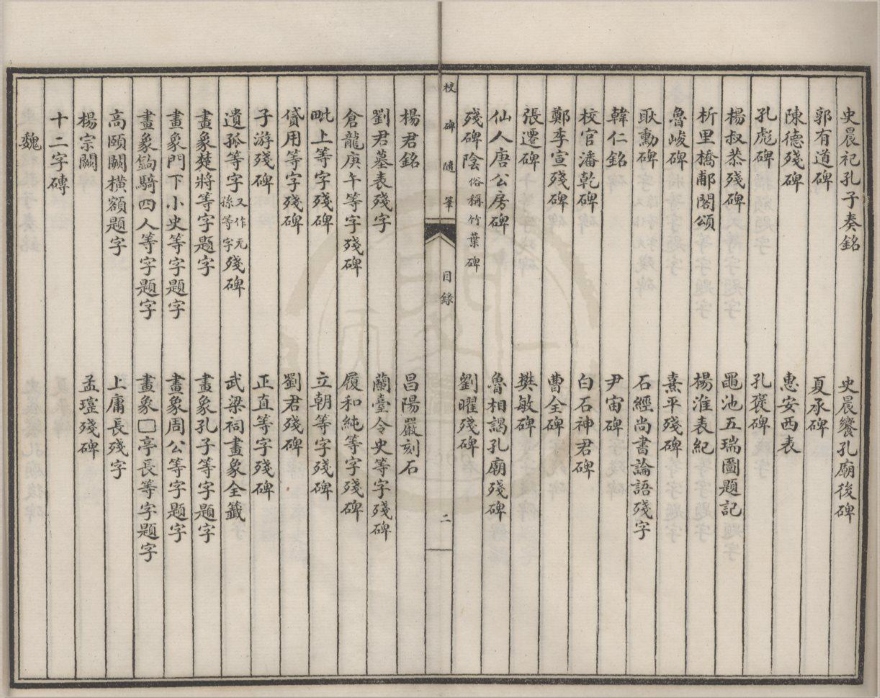 史晨祀孔子奏銘　史晨饗孔廟後碑
郭有道碑　夏承碑
陳德殘碑　惠安西表
孔彪碑　孔褒碑
楊叔恭殘碑　黽池五瑞圖題記
析里橋郙閣頌　楊淮表紀
魯峻碑　熹平殘碑
耿勳碑　石經尚書論語殘字
韓仁銘　尹宙碑
校官潘乾碑　白石神君碑
鄭季宣殘碑　曹全碑
張遷碑　樊敏碑
仙人唐公房碑　魯相謁孔廟殘碑
殘碑陰俗稱竹葉碑　劉曜殘碑
校碑隨筆　目錄　二
楊君銘　昌陽嚴刻石
劉君墓表殘字　蘭臺令史等字殘碑
倉龍庚午等字殘碑　履和純等字殘碑
毗上等字殘碑　立朝等字殘碑
貸用等字殘碑　劉君殘碑
子游殘碑　正直等字殘碑
遺孤等字又作元孫等字殘碑　武梁祠畫象全籤
畫象獎將等字題字　畫象孔子等字題字
畫象門下小史等字題字　畫象周公等字題字
畫象鉤騎四人等字題字　畫象□亭長等字題字
高頤闕橫額題字　上庸長殘字
楊宗闕　孟琁殘碑
十二字磚
魏